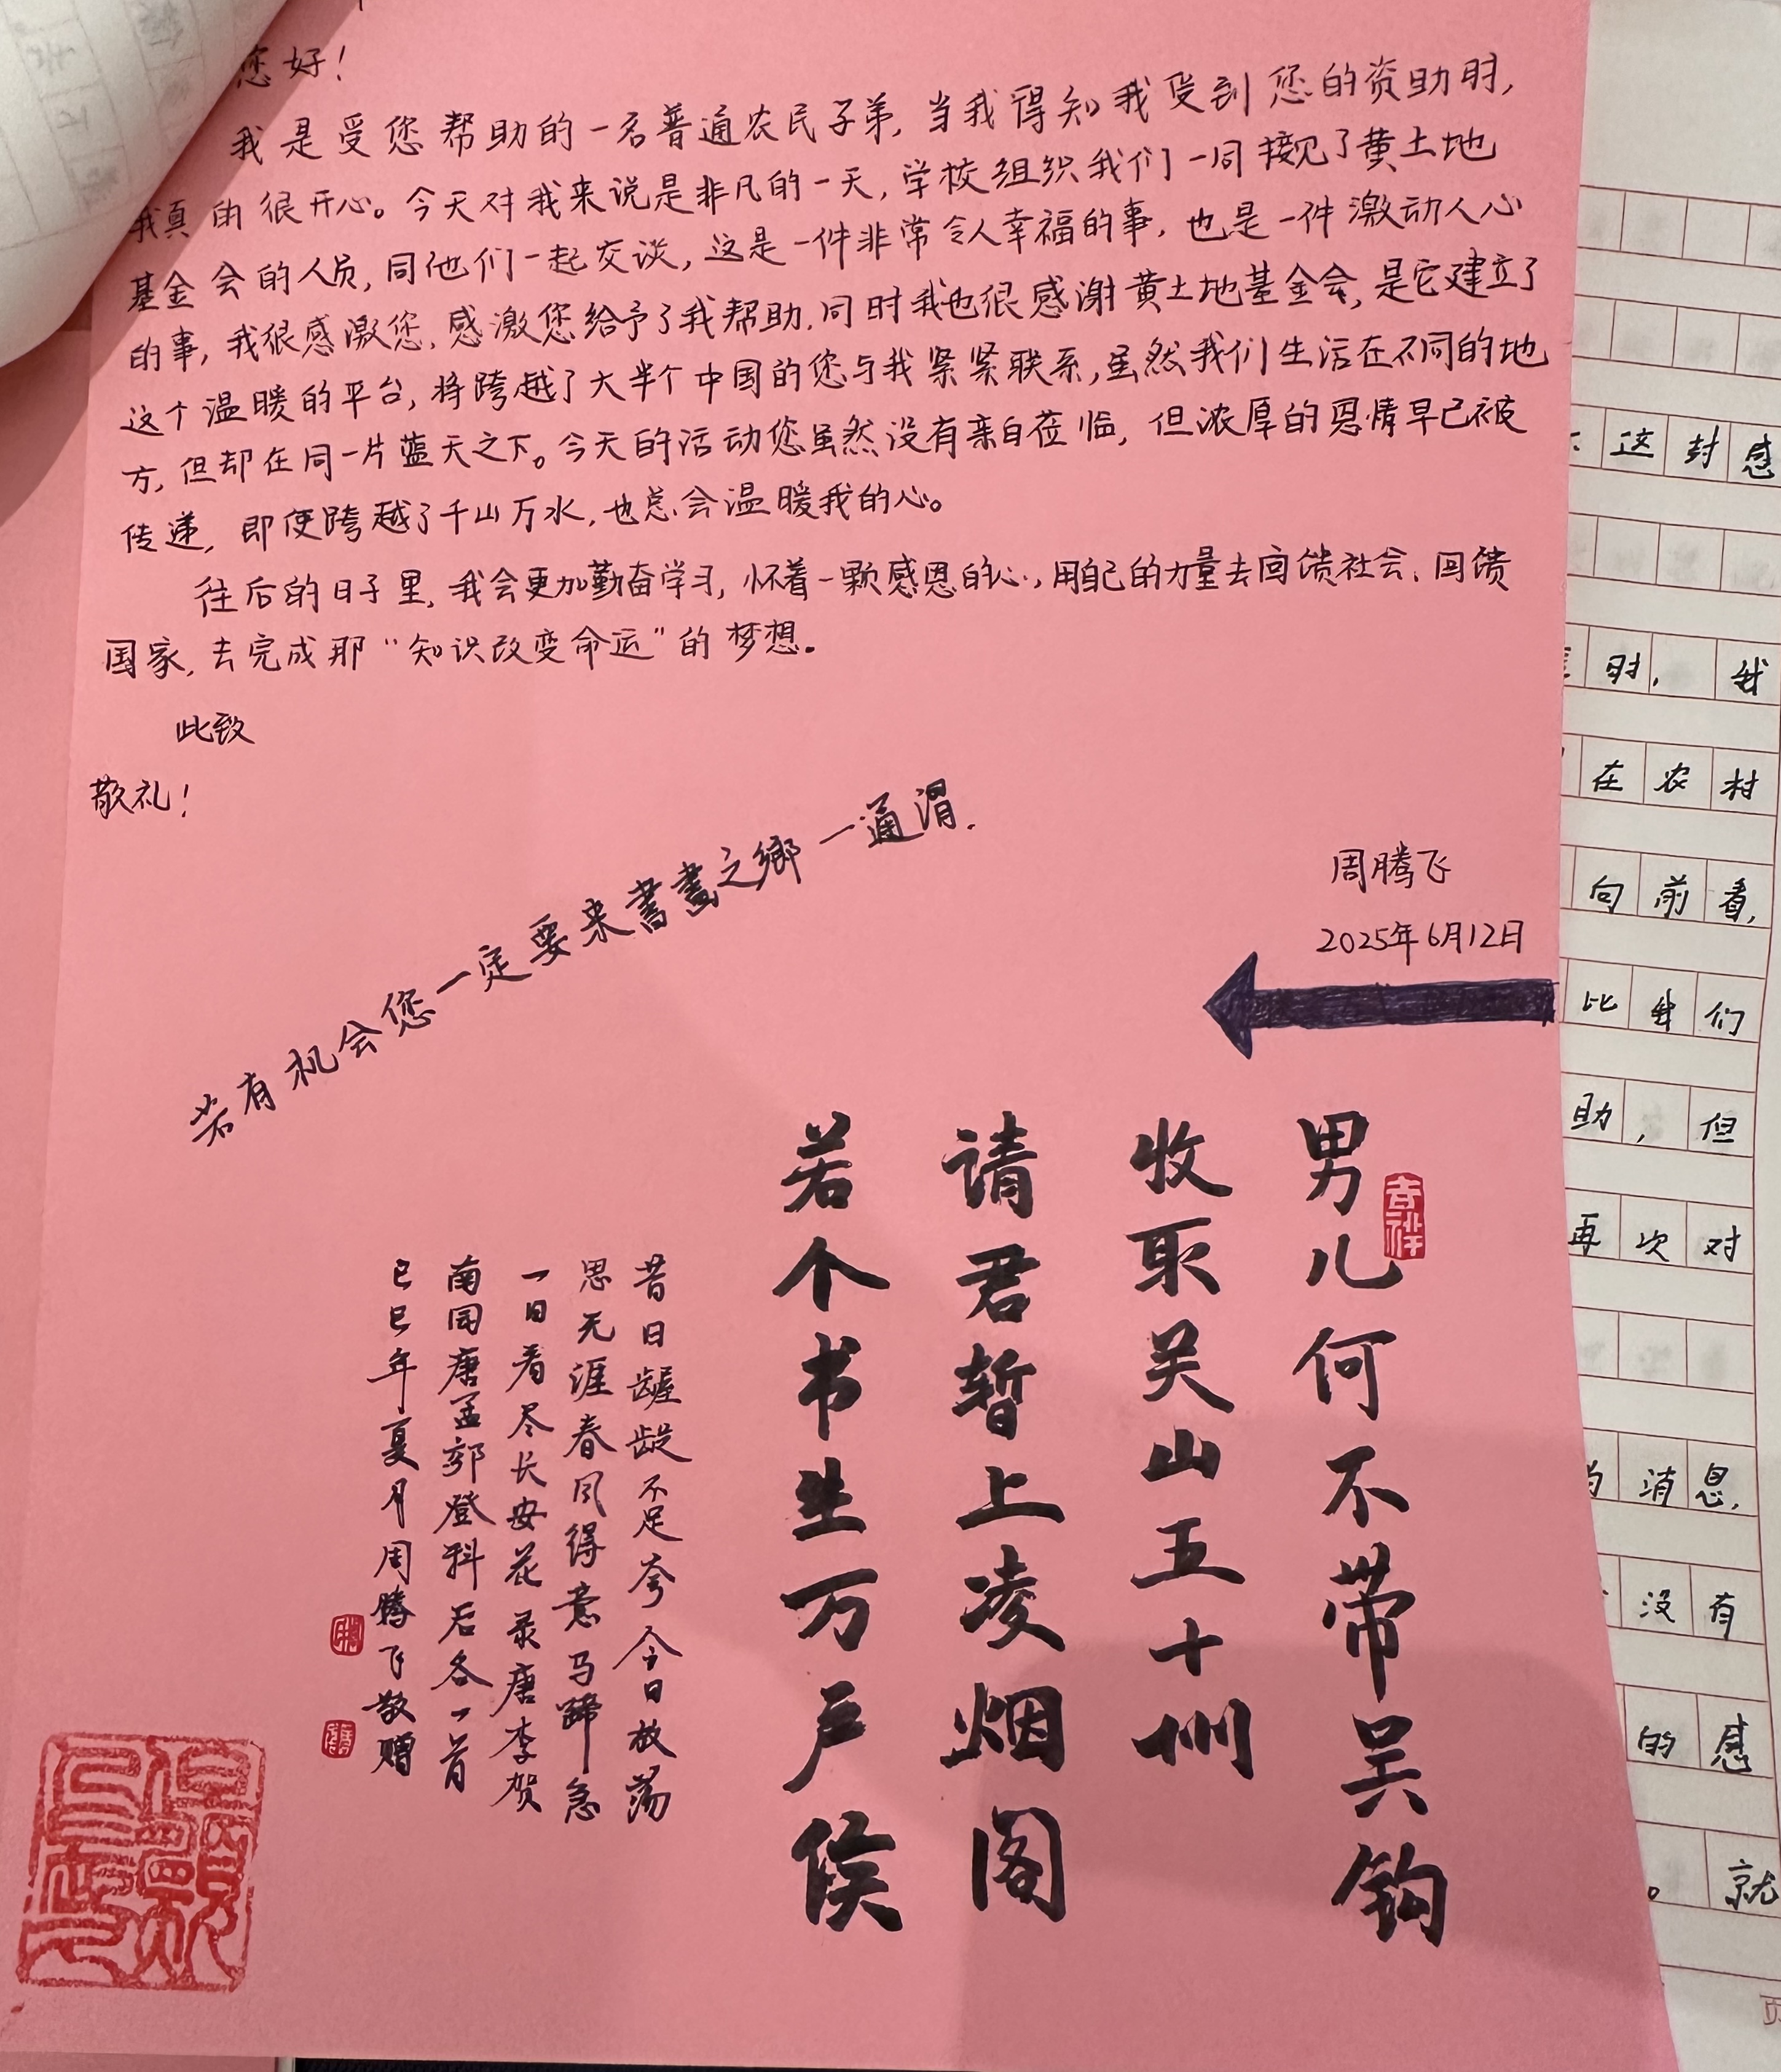 您好！
我是受您帮助的一名普通农民子弟，当我得知我受到您的资助时，
我真的很开心。今天对我来说是非凡的一天，学校组织我们一同接见了黄土地
基金会的人员，同他们一起交谈，这是一件非常令人幸福的事，也是一件激动人心
的事，我很感激您，感激您给予了我帮助，同时我也很感谢黄土地基金会，是它建立了
这个温暖的平台，将跨越了大半个中国的您与我紧紧联系，虽然我们生活在不同的地
方，但却在同一片蓝天之下。今天的活动您虽然没有亲自莅临，但浓厚的恩情早已被
传递，即使跨越了千山万水，也总会温暖我的心。
往后的日子里，我会更加勤奋学习，怀着一颗感恩的心，用自己的力量去回馈社会、回馈
国家，去完成那“知识改变命运”的梦想。
此致
敬礼！
若有机会您一定要来書畫之鄉一通渭.
周腾飞
2025年6月12日
男儿何不带吴钩
收取关山五十州
请君暂上凌烟阁
若个书生万户侯
吉祥
昔日龌龊不足夸今日放荡
思无涯春风得意马蹄急
一日看尽长安花录唐李贺
南园唐孟郊登科后各一首
乙巳年夏月周腾飞敬赠
这封感
时，我
在农村
向前看，
比我们
助，但
再次对
消息，
没有
的感
。就